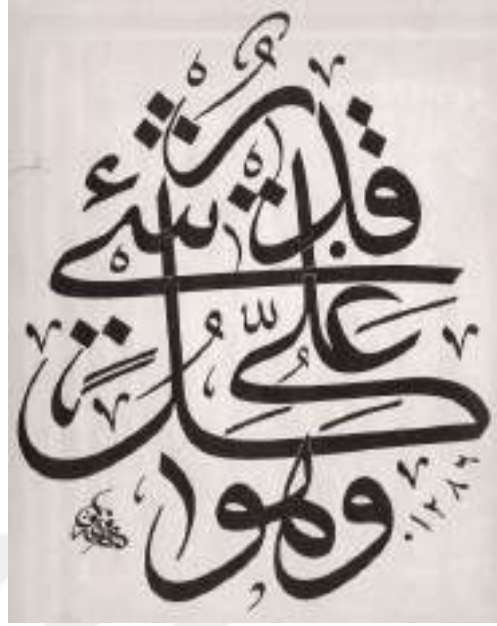 وهو
على كل
شئ قدير
١٢٨٦